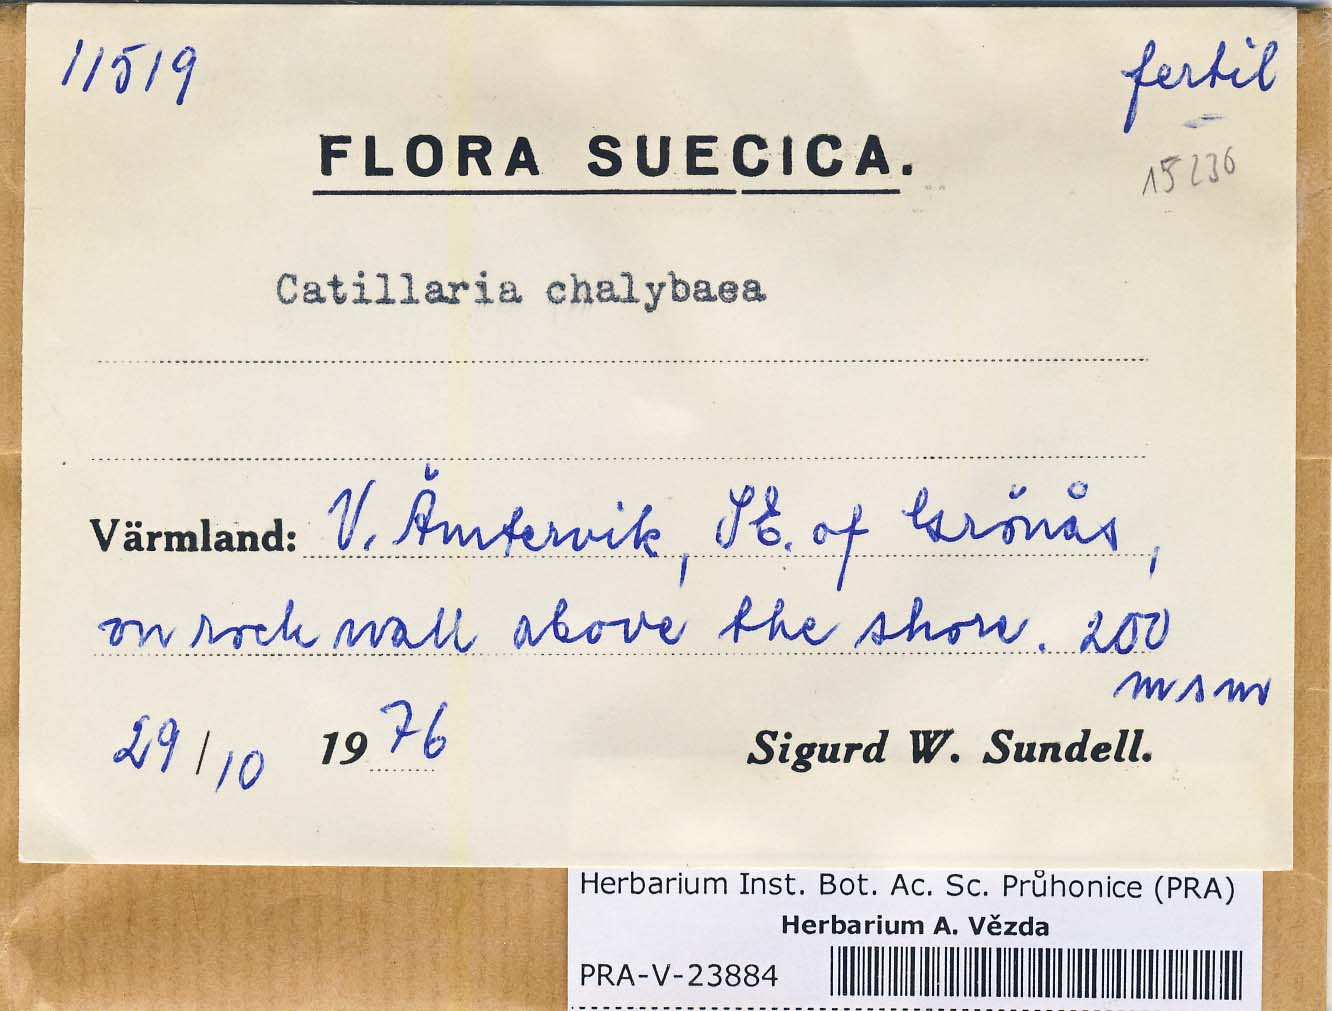 11519
fertil
FLORA SUECICA.
15236
Catillaria chalybaea
Värmland: V. Ämtervik, SE. of Grönås,
on rock wall above the shore. 200
msm
29/10 1976
Sigurd W. Sundell.
Herbarium Inst. Bot. Ac. Sc. Průhonice (PRA)
Herbarium A. Vězda
PRA-V-23884